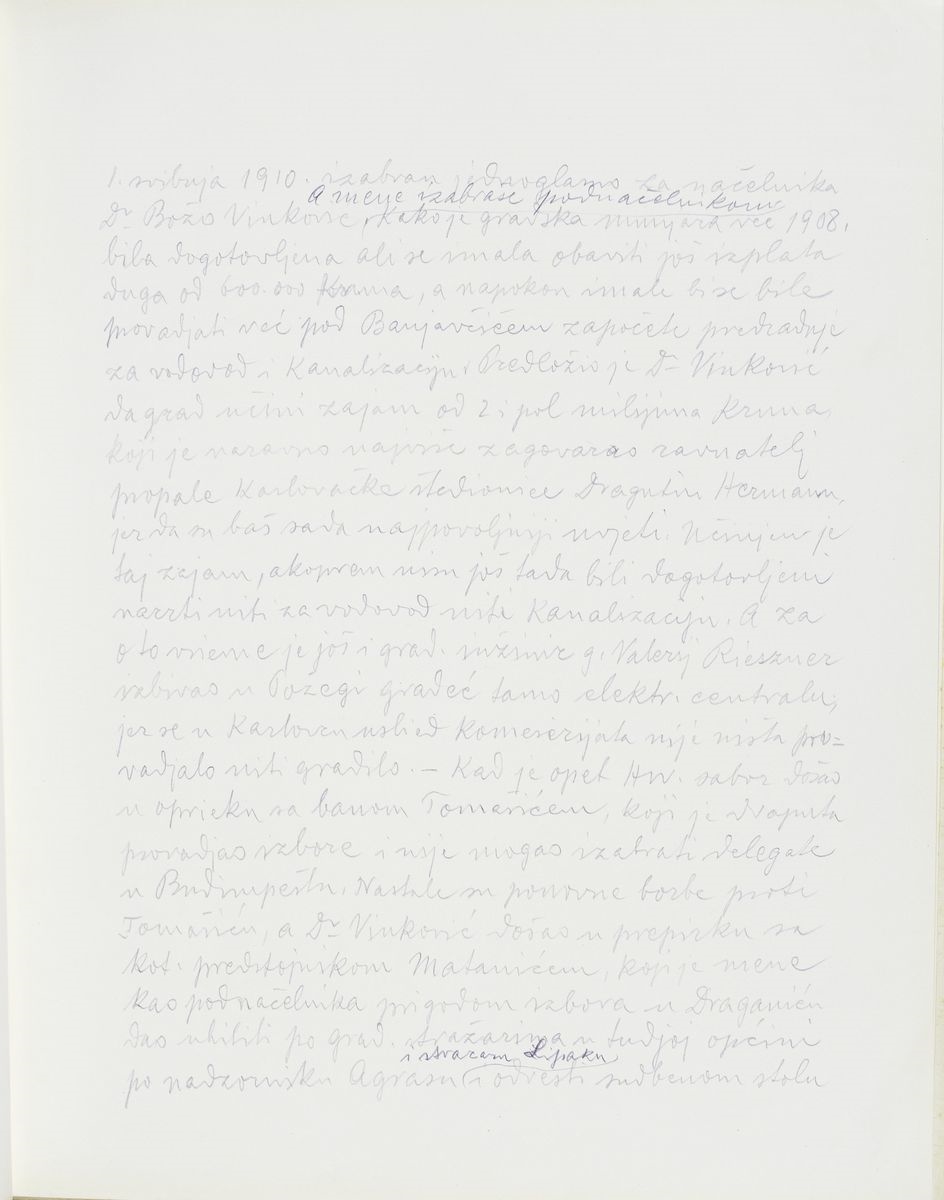 1. svibnja 1910. izabran jednoglasno za načelnika
A mene izabraše podnačelnikom
Dr Božo Vinković, Kako je gradska munjara već 1908.
bila dogotovljena ali se imala obaviti još izplata
duga od 600.000 Kruna, a napokon imale bi se bile
provadjati već pod Banjavčićem započete predradnje
za vodovod i Kanalizaciju, Predložio je Dr Vinković
da grad učini zajam od 2 i pol milijuna Kruna,
koji je naravno najviše zagovarao ravnatelj
propale Karlovačke štedionice Dragutin Hermann,
jer da su baš sada najpovoljniji uvjeti. Učinjen je
taj zajam, akoprem nisu još tada bili dogotovljeni
nacrti niti za vodovod niti Kanalizaciju. A za
o to vrieme je još i grad. inžinir g. Valerij Rieszner
izbivao u Požegi gradeć tamo elektr. centralu,
jer se u Karlovcu uslied Komesarijata nije ništa pro=
vadjalo niti gradilo. — Kad je opet Hrv. sabor došao
u oprieku sa banom Tomašićem, koji je dvaputa
provadjao izbore i nije mogao izabrati delegate
u Budimpeštu. Nastale su ponovne borbe proti
Tomašiću, a Dr Vinković došao u prepirku sa
kot. predstojnikom Matanićem, koji je mene
kao podnačelnika prigodom izbora u Draganiću
dao uhititi po grad. stražarima u tudjoj općini
i stražaru Lipaku
po nadzorniku Agrasu i odvesti sudbenom stolu